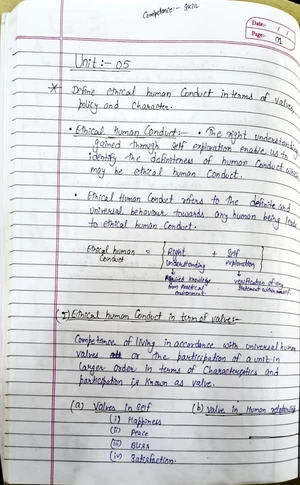 Competence:- Skill
Date:- / /
Page:- 01
Unit:- 05
* Define ethical human Conduct in terms of values
policy and Character.
• Ethical Human Conduct:- • The right understanding
gained through self exploration enable us to
identify the definiteness of human Conduct which
may be ethical human Conduct.
• Ethical Human Conduct refers to the definite and
universal behaviour towards any human being leads
to ethical human Conduct.
Ethical human Conduct = [Right understanding + Self exploration]
Required knowledge from Practical environment
verification of any statement within
(I) Ethical human Conduct in term of value:-
Competence of living in accordance with universal human
values or the participation of a unit in
larger order in terms of Characteristics and
participation is known as value.
(a) Values in self (b) Value in Human relationship
(i) Happiness
(ii) Peace
(iii) Bliss
(iv) Satisfaction.